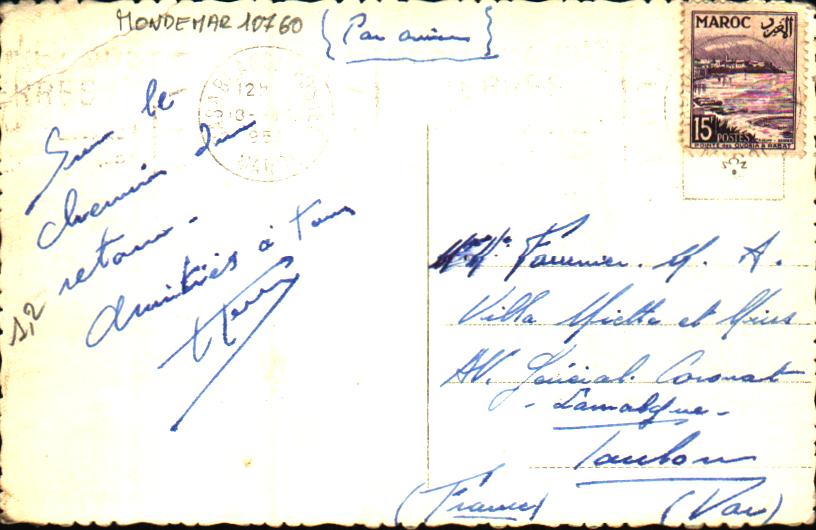 MONDEMAR 10760
(Par avion)
MAROC
المغرب
15F POSTES
POINTE des OUDAIA à RABAT
12H
MAROC
Sur le
chemin du
retour.
Amitiés à tous
1,2
Fournier. M. A.
Villa Miette et
AV. Général. Carmat
- Lamalgue -
Toulon
(France) (Var)